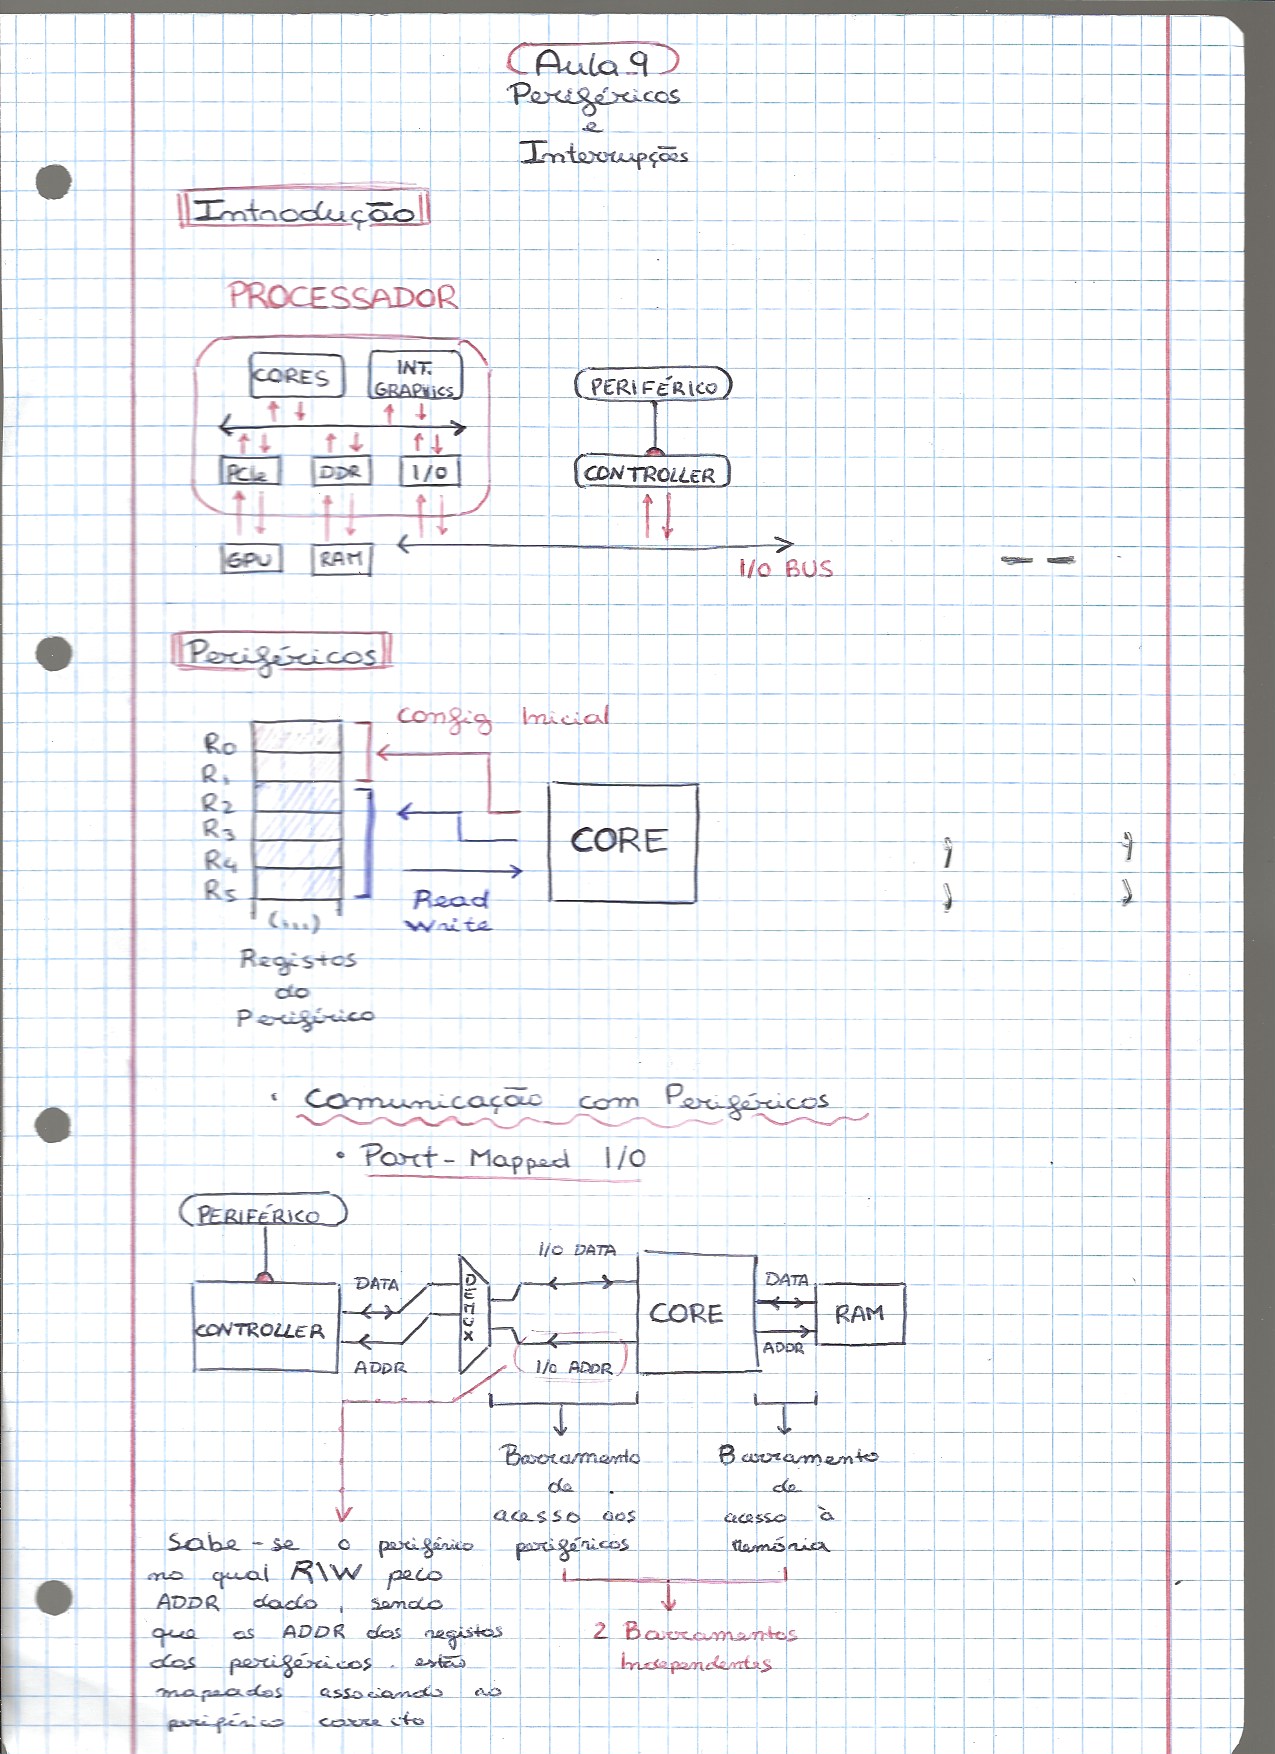 Aula 9
Periféricos
e
Interrupções
Introdução
PROCESSADOR
CORES
INT.
GRAPHICS
PERIFÉRICO
PCIe
DDR
I/O
CONTROLLER
GPU
RAM
I/O BUS
Periféricos
Config Inicial
R0
R1
R2
R3
R4
R5
(...)
CORE
Read
Write
Registos
do
Periférico
• Comunicação com Periféricos
• Port-Mapped I/O
PERIFÉRICO
I/O DATA
DATA
DATA
DEMUX
CONTROLLER
CORE
RAM
ADDR
I/O ADDR
ADDR
Barramento
de
acesso aos
periféricos
Barramento
de
acesso à
Memória
Sabe-se o periférico
no qual R\W pelo
ADDR dado, sendo
que os ADDR dos registos
dos periféricos estão
mapeados associando ao
periférico correcto
2 Barramentos
Independentes